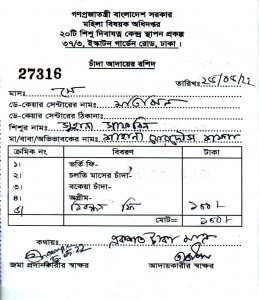 গণপ্রজাতন্ত্রী বাংলাদেশ সরকার
মহিলা বিষয়ক অধিদপ্তর
২০টি শিশু দিবাযত্ন কেন্দ্র স্থাপন প্রকল্প
৩৭/৩, ইস্কাটন গার্ডেন রোড, ঢাকা।
চাঁদা আদায়ের রশিদ
27316
তারিখঃ
মাসঃ মে
ডে-কেয়ার সেন্টারের নামঃ
ডে-কেয়ার সেন্টারের ঠিকানাঃ
শিশুর নামঃ
মা/বাবা/অভিভাবকের নামঃ
ক্রমিক নং বিবরণ টাকা
১। ভর্তি ফি-
২। চলতি মাসের চাঁদা-
৩। বকেয়া চাঁদা-
৪। অগ্রীম-
৫। ফি ১০০/-
মোট= ১০০/-
কথায়ঃ একশত টাকা মাত্র
জমা প্রদানকারীর স্বাক্ষর আদায়কারীর স্বাক্ষর